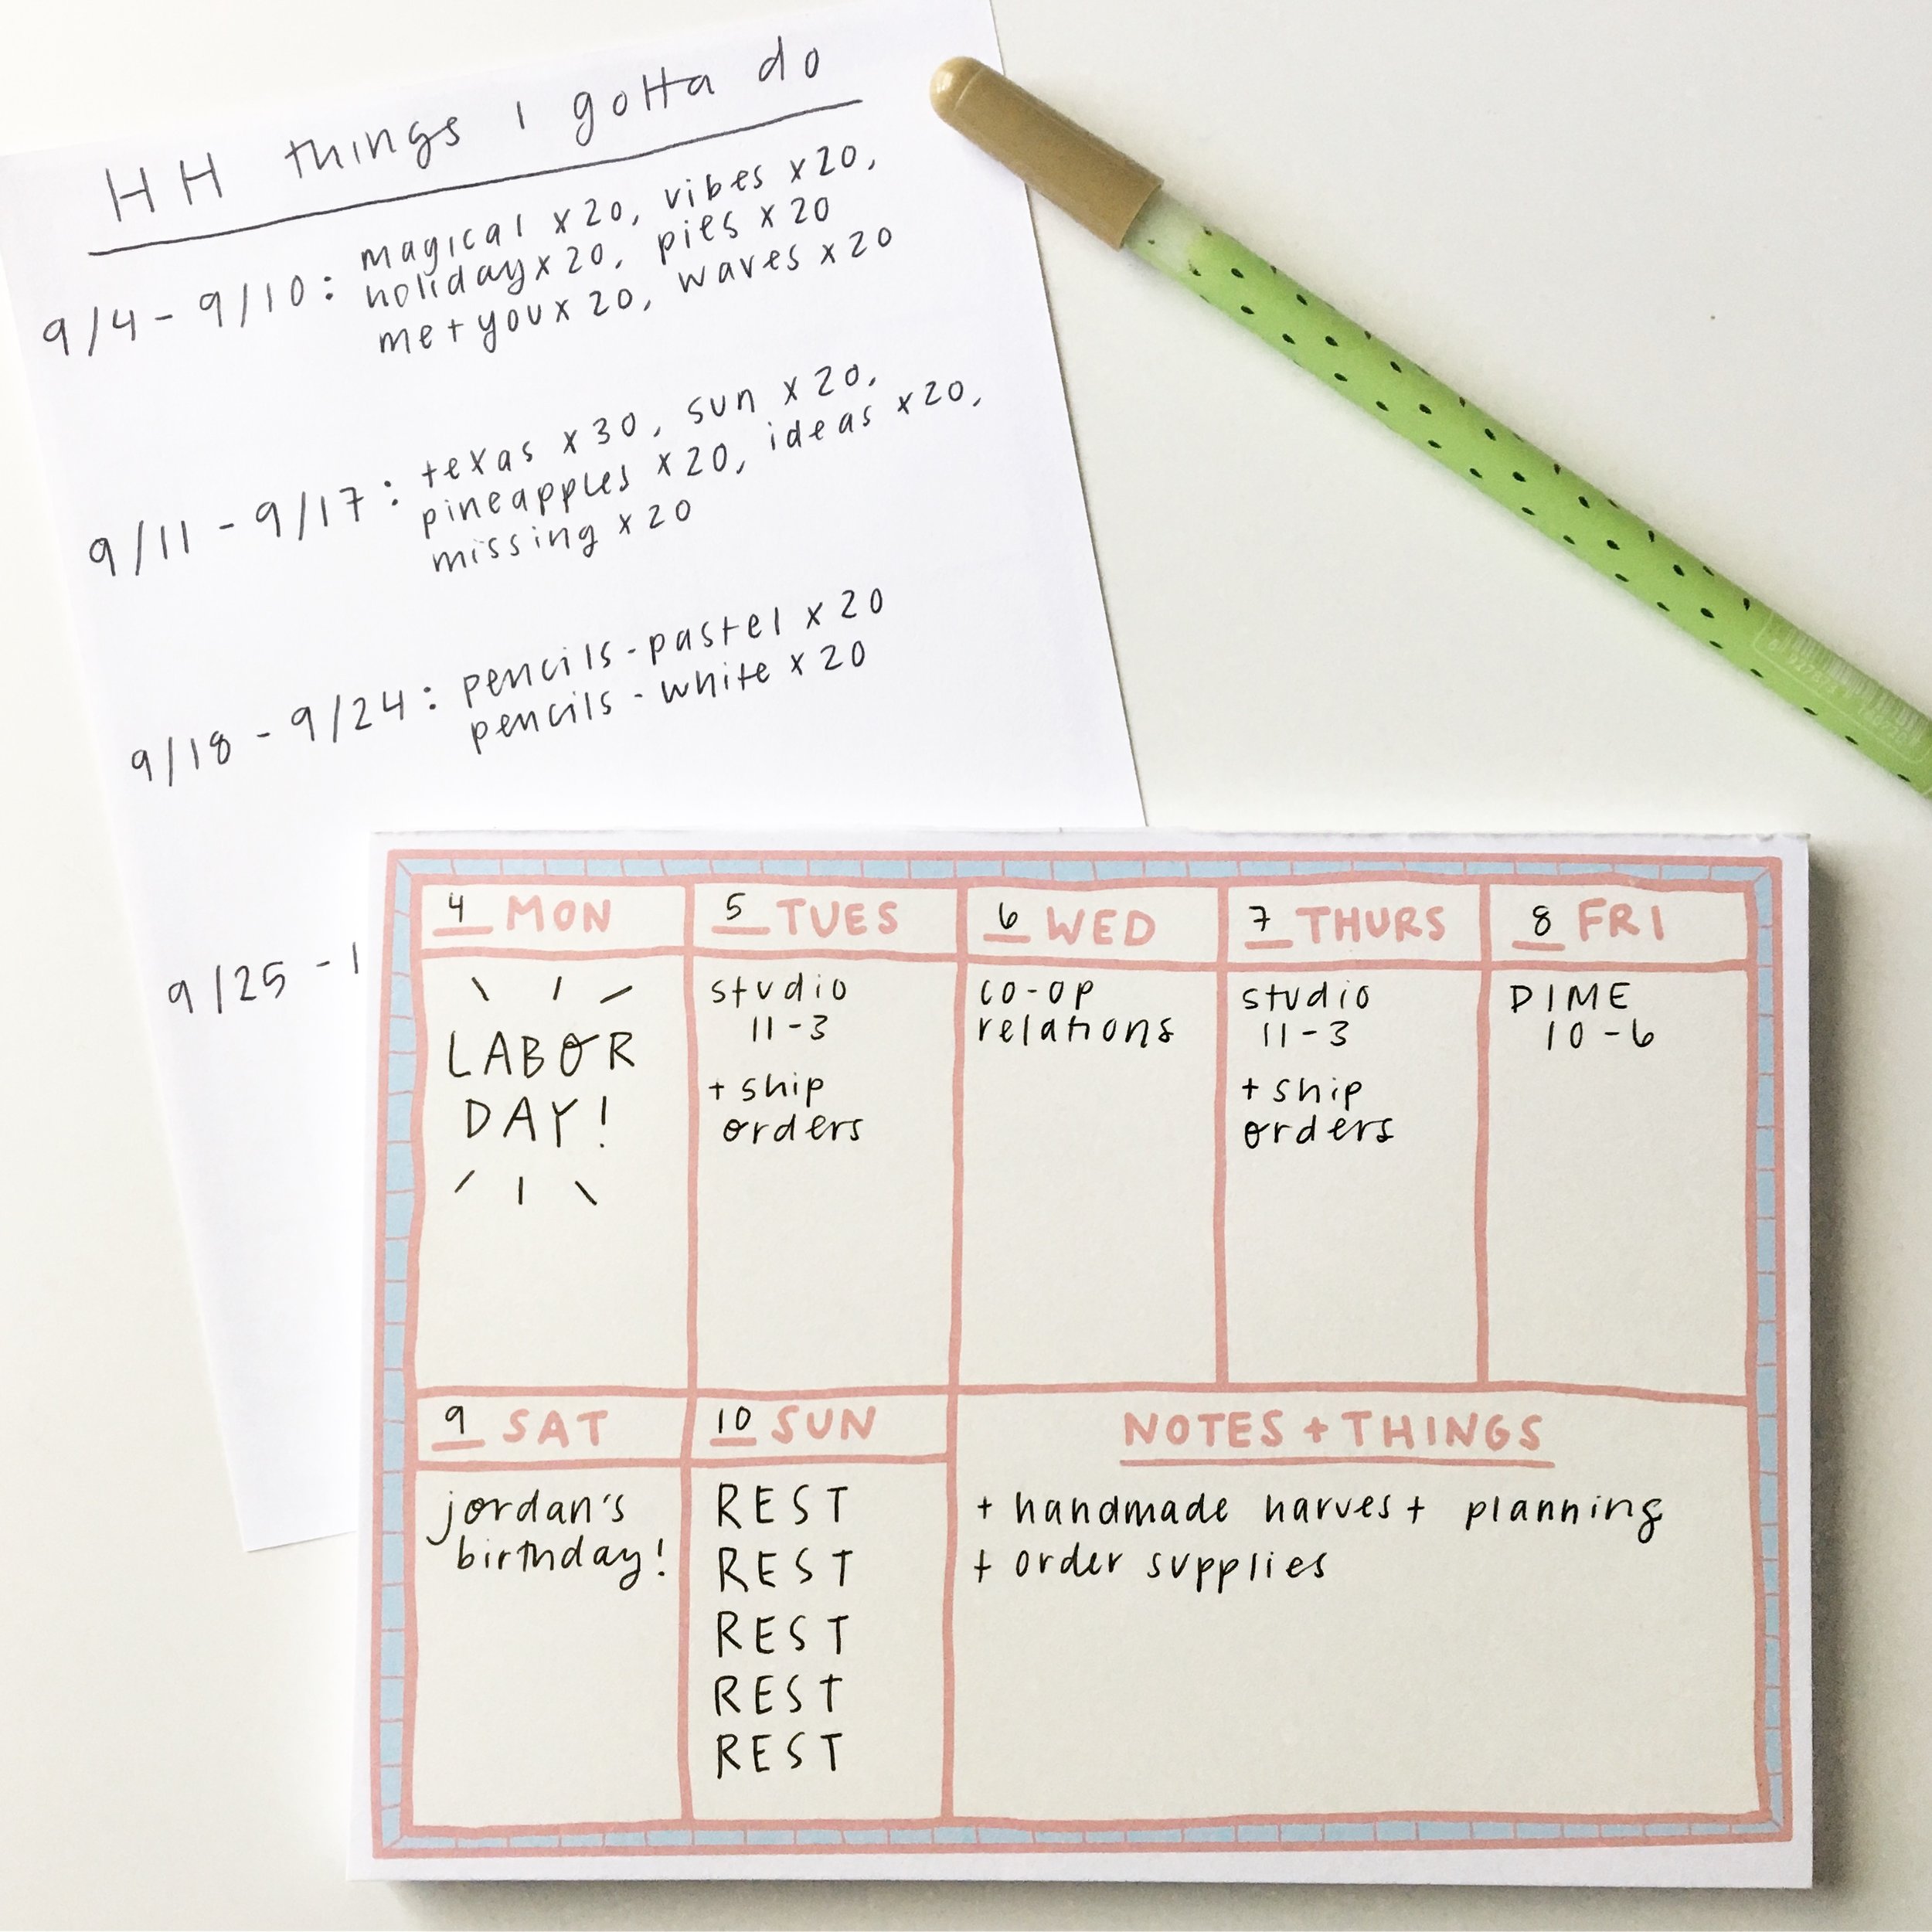 HH things i gotta do
9/4 - 9/10: magical x 20, vibes x 20,
holiday x 20, pies x 20
me + you x 20, waves x 20
9/11 - 9/17: texas x 30, sun x 20,
pineapples x 20, ideas x 20,
missing x 20
9/18 - 9/24: pencils - pastel x 20
pencils - white x 20
9/25 - 1
4 MON
LABOR
DAY!
5 TUES
studio
11-3
+ ship
orders
6 WED
co-op
relations
7 THURS
studio
11-3
+ ship
orders
8 FRI
DIME
10-6
9 SAT
jordan's
birthday!
10 SUN
REST
REST
REST
REST
REST
NOTES + THINGS
+ handmade harvest planning
+ order supplies